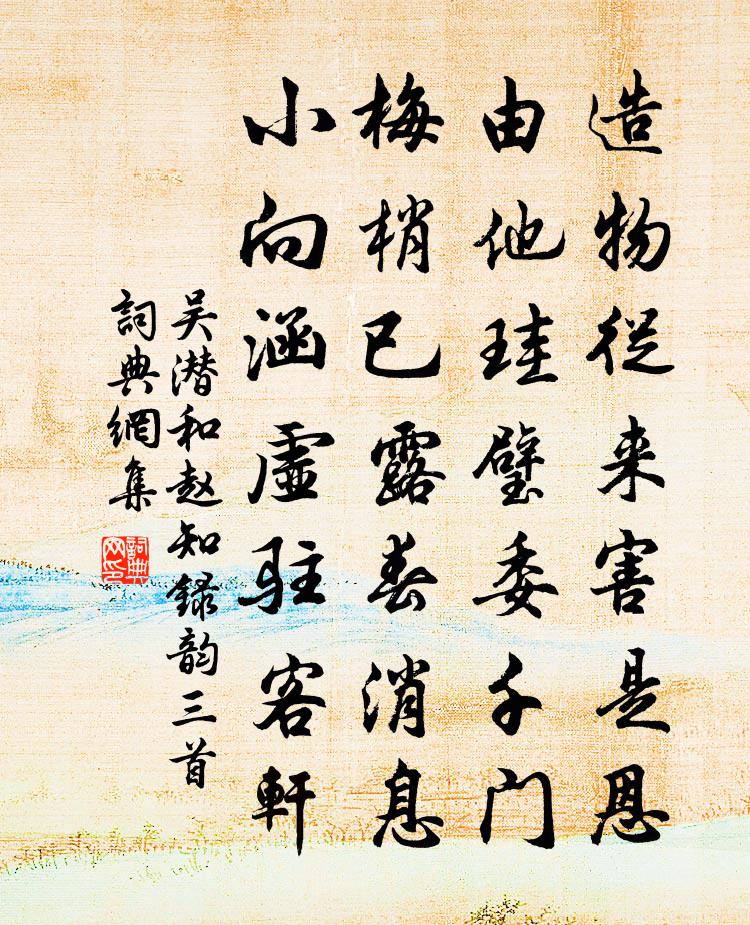 造物從来害是恩
由他珪璧委千門
梅梢已露春消息
小向涵虛駐客軒
吴潜和赵知録韵三首
詞典網集
詞典网印